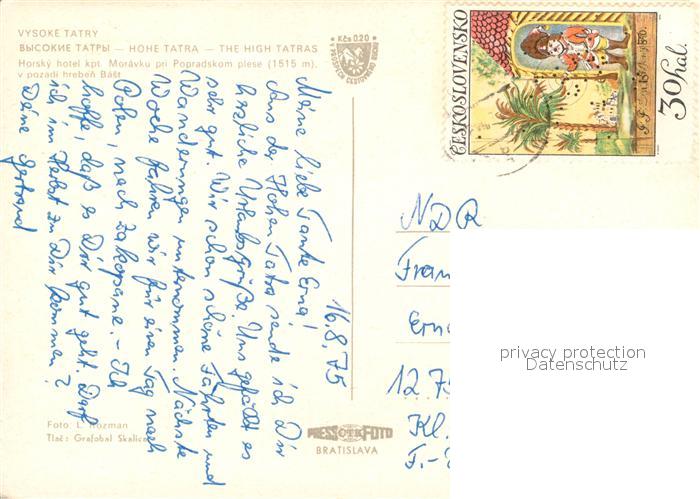 VYSOKÉ TATRY
ВЫСОКИЕ ТАТРЫ — HOHE TATRA — THE HIGH TATRAS
Horský hotel kpt. Morávku pri Popradskom plese (1515 m),
v pozadí hrebeň Bášt
Kčs 0.20
ČESKOSLOVENSKO
30 hal.
16.8.75
Meine liebe Tante Erna!
Aus der Hohen Tatra sende ich Dir
herzliche Urlaubsgrüße. Uns gefällt es
sehr gut. Wir schon schöne Fahrten und
Wanderungen unternommen. Nächste
Woche fahren wir für einen Tag nach
Polen, nach Zakopane. – Ich
hoffe, daß es Dir gut geht. Darf
ich im Herbst zu Dir kommen?
Deine Gertraud
NDR
Fran
Erna
12 75
Kl.
F.-
privacy protection
Datenschutz
Foto: L. Rozman
Tlač: Grafobal Skalica
PRESSFOTO
BRATISLAVA